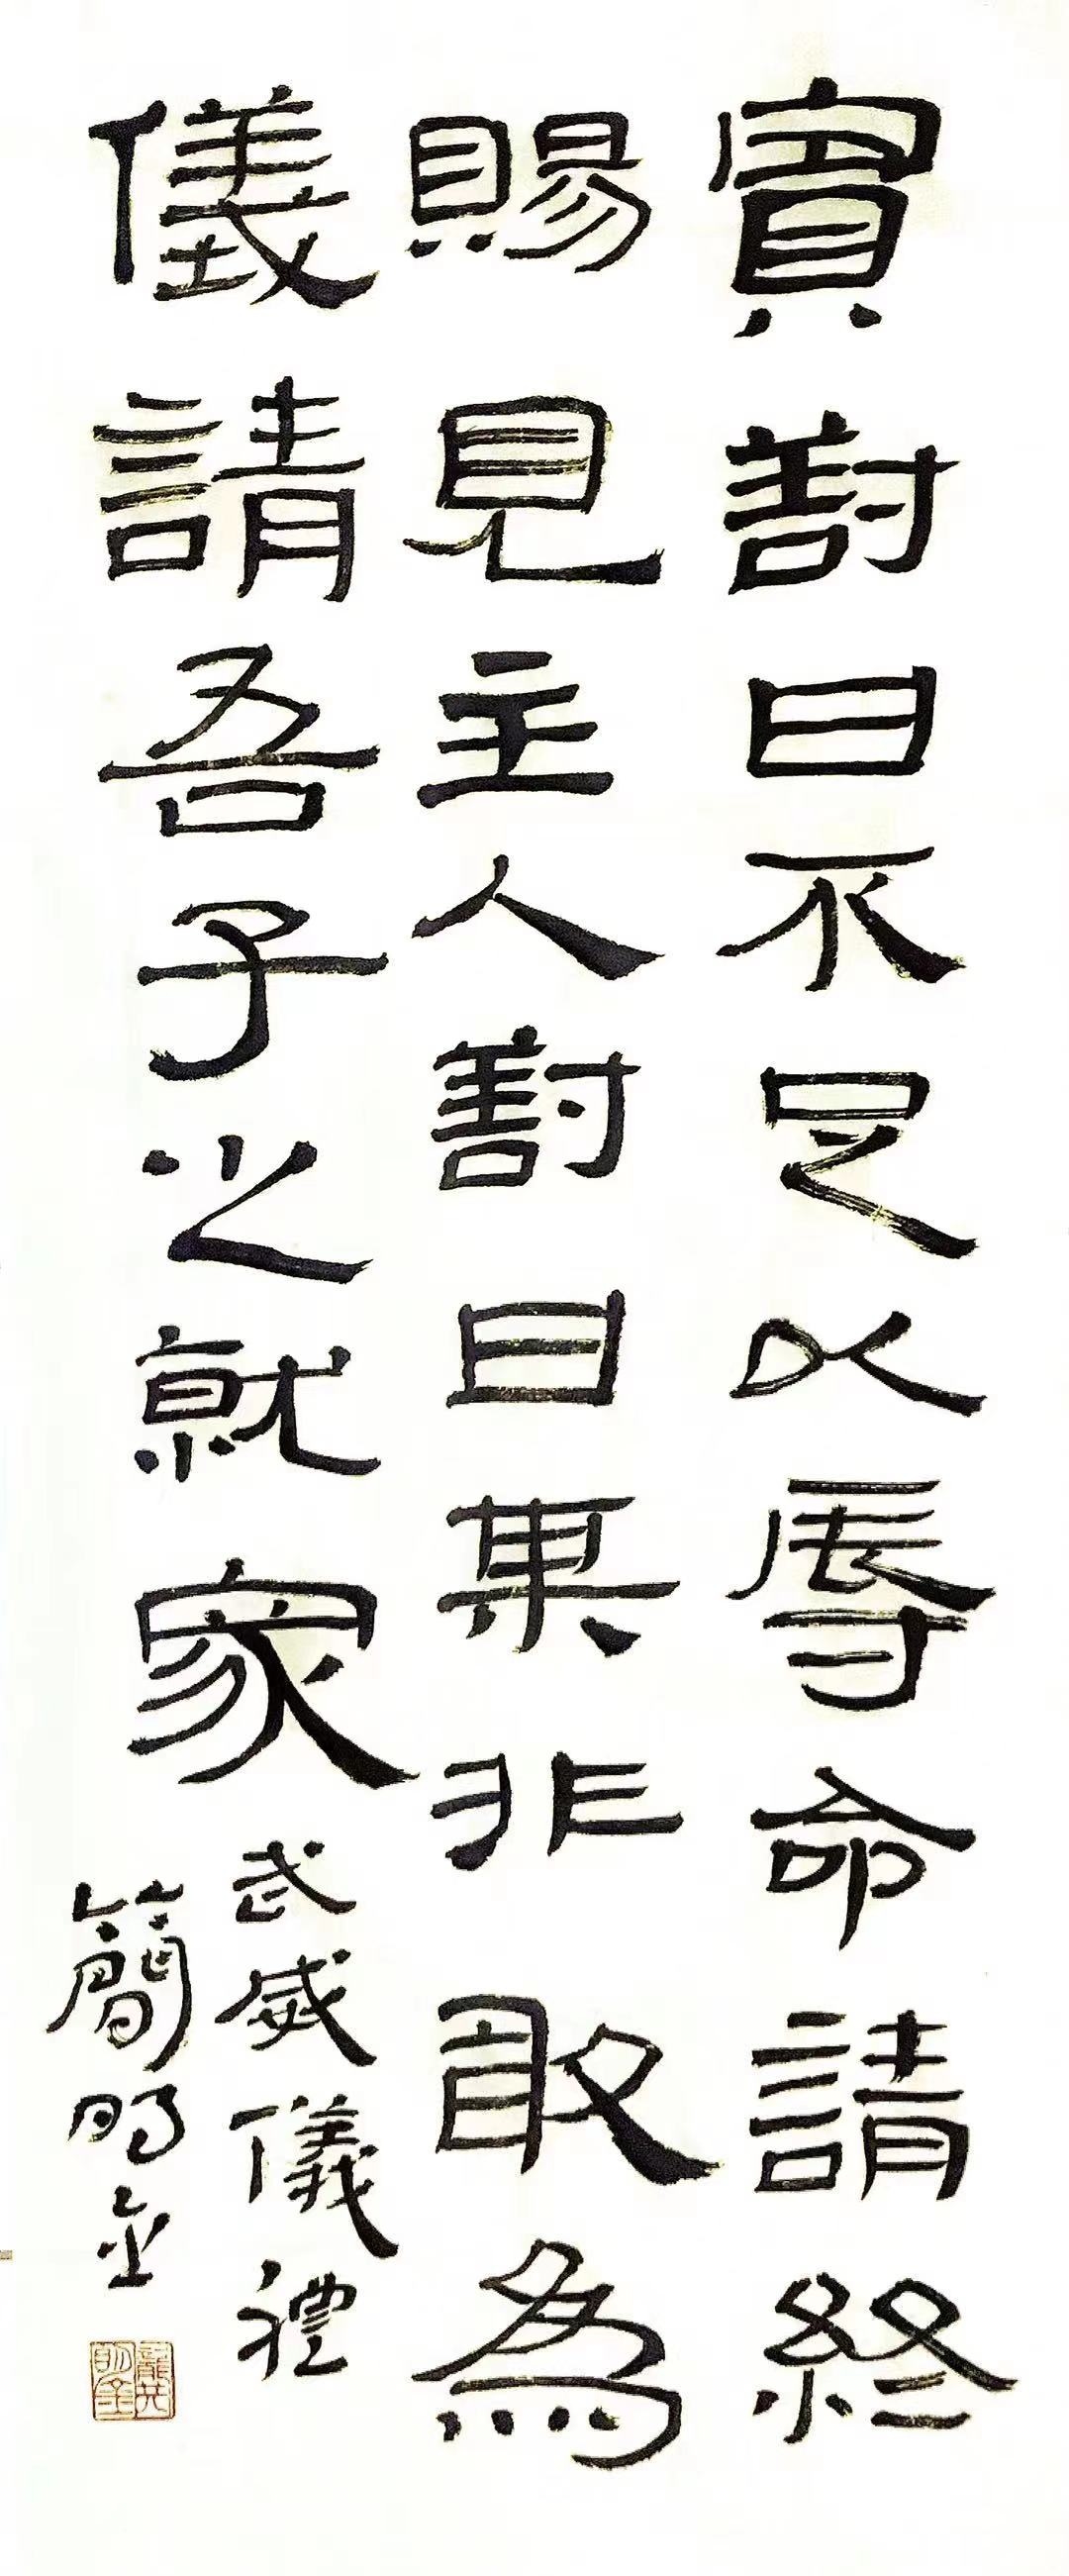 賓對曰不足以辱命請終
賜見主人對曰某非敢為
儀請吾子之就家
武威儀禮
簡明金
龔共明金